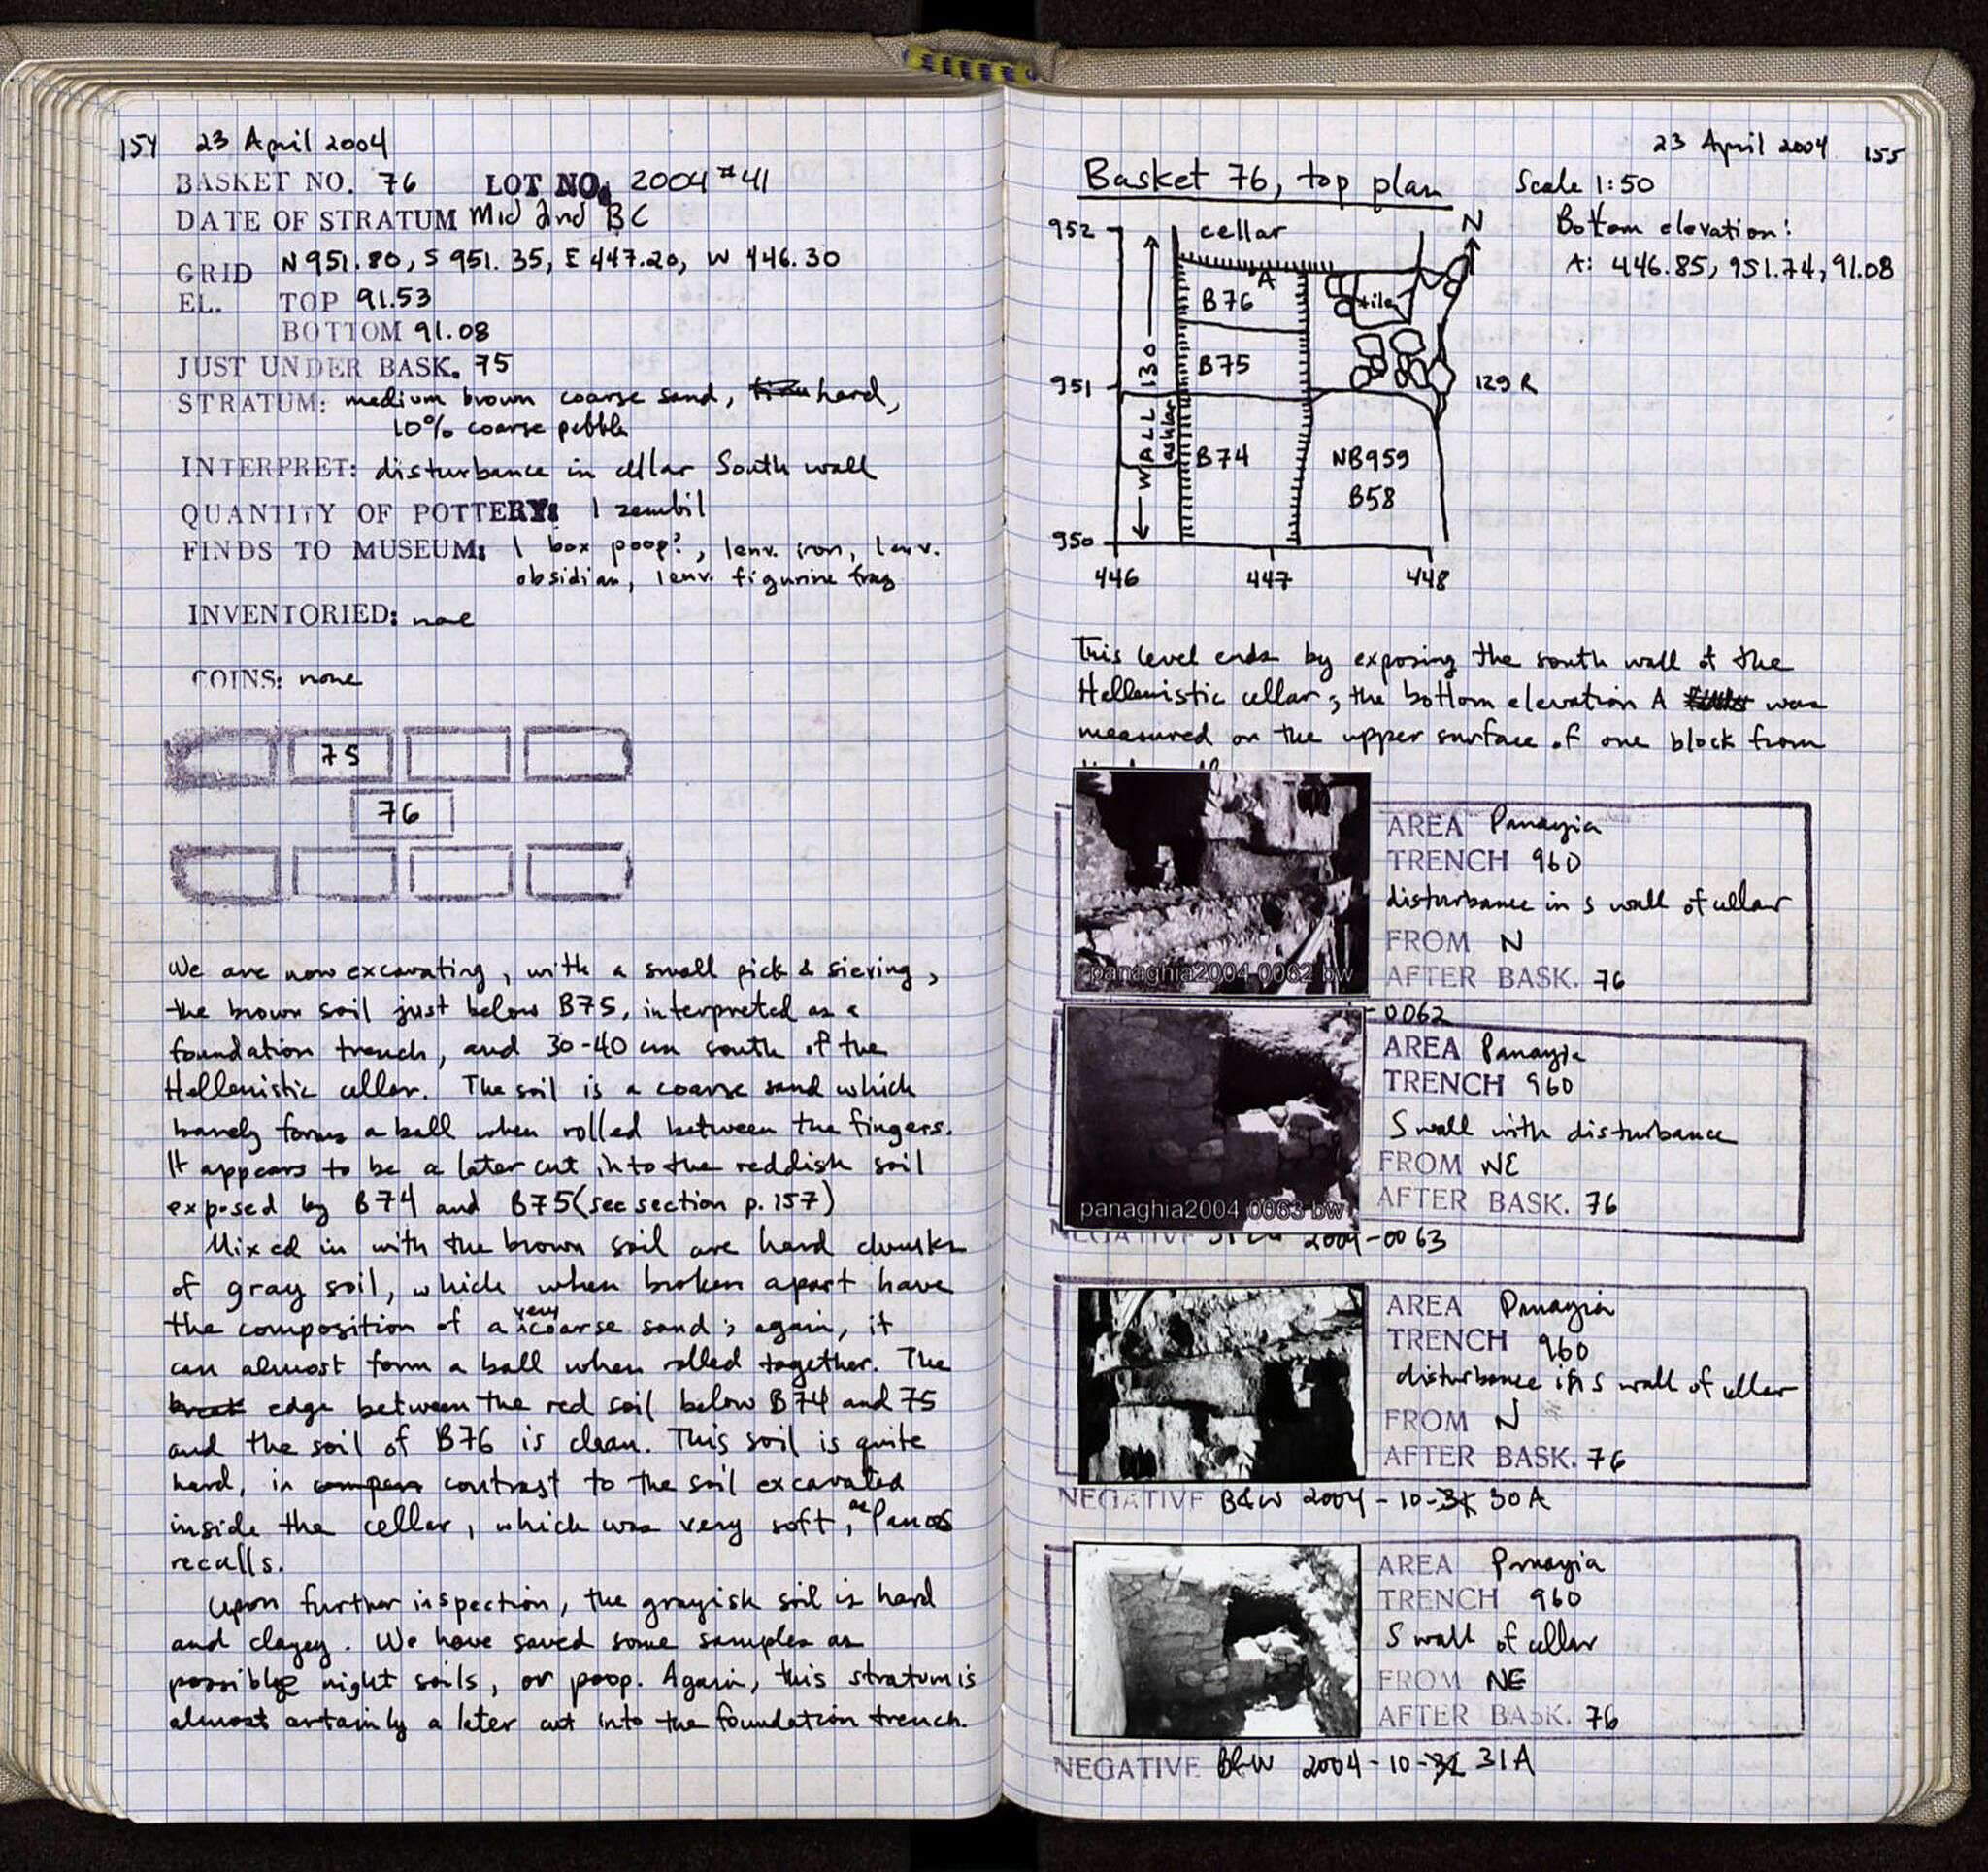 154 23 April 2004
BASKET NO. 76 LOT NO. 2004 #41
DATE OF STRATUM Mid 2nd BC
GRID N 951.80, S 951.35, E 447.20, W 446.30
EL. TOP 91.53
BOTTOM 91.08
JUST UNDER BASK. 75
STRATUM: medium brown coarse sand, hard,
10% coarse pebble
INTERPRET: disturbance in cellar South wall
QUANTITY OF POTTERY: 1 zembil
FINDS TO MUSEUM: 1 box poop?, 1env. iron, 1env.
obsidian, 1env. figurine frag
INVENTORIED: none
COINS: none
75
76
We are now excavating, with a small pick & sieving,
the brown soil just below B75, interpreted as a
foundation trench, and 30-40 cm south of the
Hellenistic cellar. The soil is a coarse sand which
barely forms a ball when rolled between the fingers.
It appears to be a later cut into the reddish soil
exposed by B74 and B75 (see section p. 157)
Mixed in with the brown soil are hard chunks
of gray soil, which when broken apart have
the composition of a very coarse sand; again, it
can almost form a ball when rolled together. The
break edge between the red soil below B74 and 75
and the soil of B76 is clean. This soil is quite
hard, in compars contrast to the soil excavated
inside the cellar, which was very soft, as Panos
recalls.
Upon further inspection, the grayish soil is hard
and clayey. We have saved some samples as
possible night soils, or poop. Again, this stratum is
almost certainly a later cut into the foundation trench.
23 April 2004 155
Basket 76, top plan Scale 1:50
Bottom elevation:
A: 446.85, 951.74, 91.08
N
952
cellar
A
B76
tile
B75
951
129 R
WALL 130
ashlar
B74
NB959
B58
950
446 447 448
This level ends by exposing the south wall of the
Hellenistic cellar; the bottom elevation A was
measured on the upper surface of one block from
AREA Panayia
TRENCH 960
disturbance in S wall of cellar
FROM N
AFTER BASK. 76
panaghia2004 0062 bw
-0062
AREA Panayia
TRENCH 960
S wall with disturbance
FROM NE
AFTER BASK. 76
panaghia2004 0063 bw
NEGATIVE 2004-0063
AREA Panayia
TRENCH 960
disturbance in S wall of cellar
FROM N
AFTER BASK. 76
NEGATIVE B&W 2004-10-31 30A
AREA Panayia
TRENCH 960
S wall of cellar
FROM NE
AFTER BASK. 76
NEGATIVE B&W 2004-10-32 31A